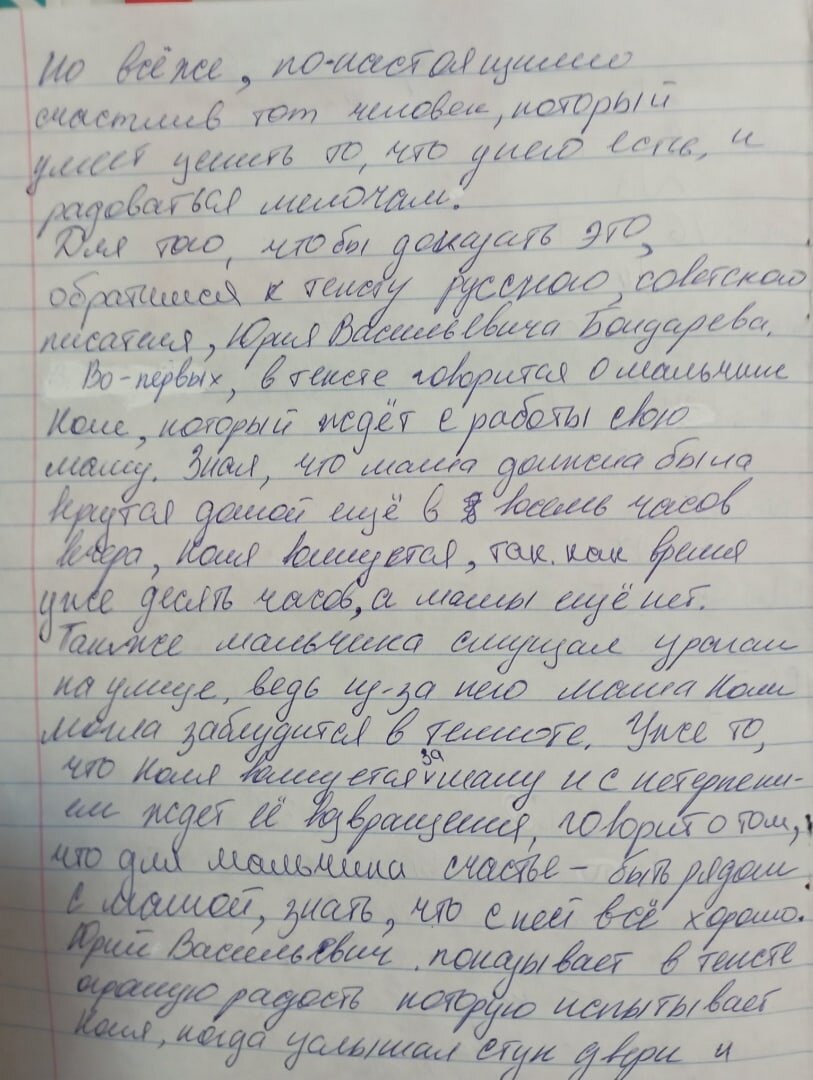 Но всё же, по-настоящему
счастлив тот человек, который
умеет ценить то, что у него есть, и
радоваться мелочам.
Для того, чтобы доказать это,
обратимся к тексту русского, советского
писателя, Юрия Васильевича Бондарева.
Во-первых, в тексте говорится о мальчике
Коле, который ждёт с работы свою
маму. Зная, что мама должна была
вернутся домой ещё в восемь часов
вечера, Коля волнуется, так как время
уже десять часов, а мамы ещё нет.
Также мальчика смущал ураган
на улице, ведь из-за него мама Коли
могла заблудится в темноте. Уже то,
что Коля волнуется за маму и с нетерпени-
ем ждет её возвращения, говорит о том,
что для мальчика счастье - быть рядом
с мамой, знать, что с ней всё хорошо.
Юрий Васильевич показывает в тексте
огромную радость которую испытывает
Коля, когда услышал стук двери и